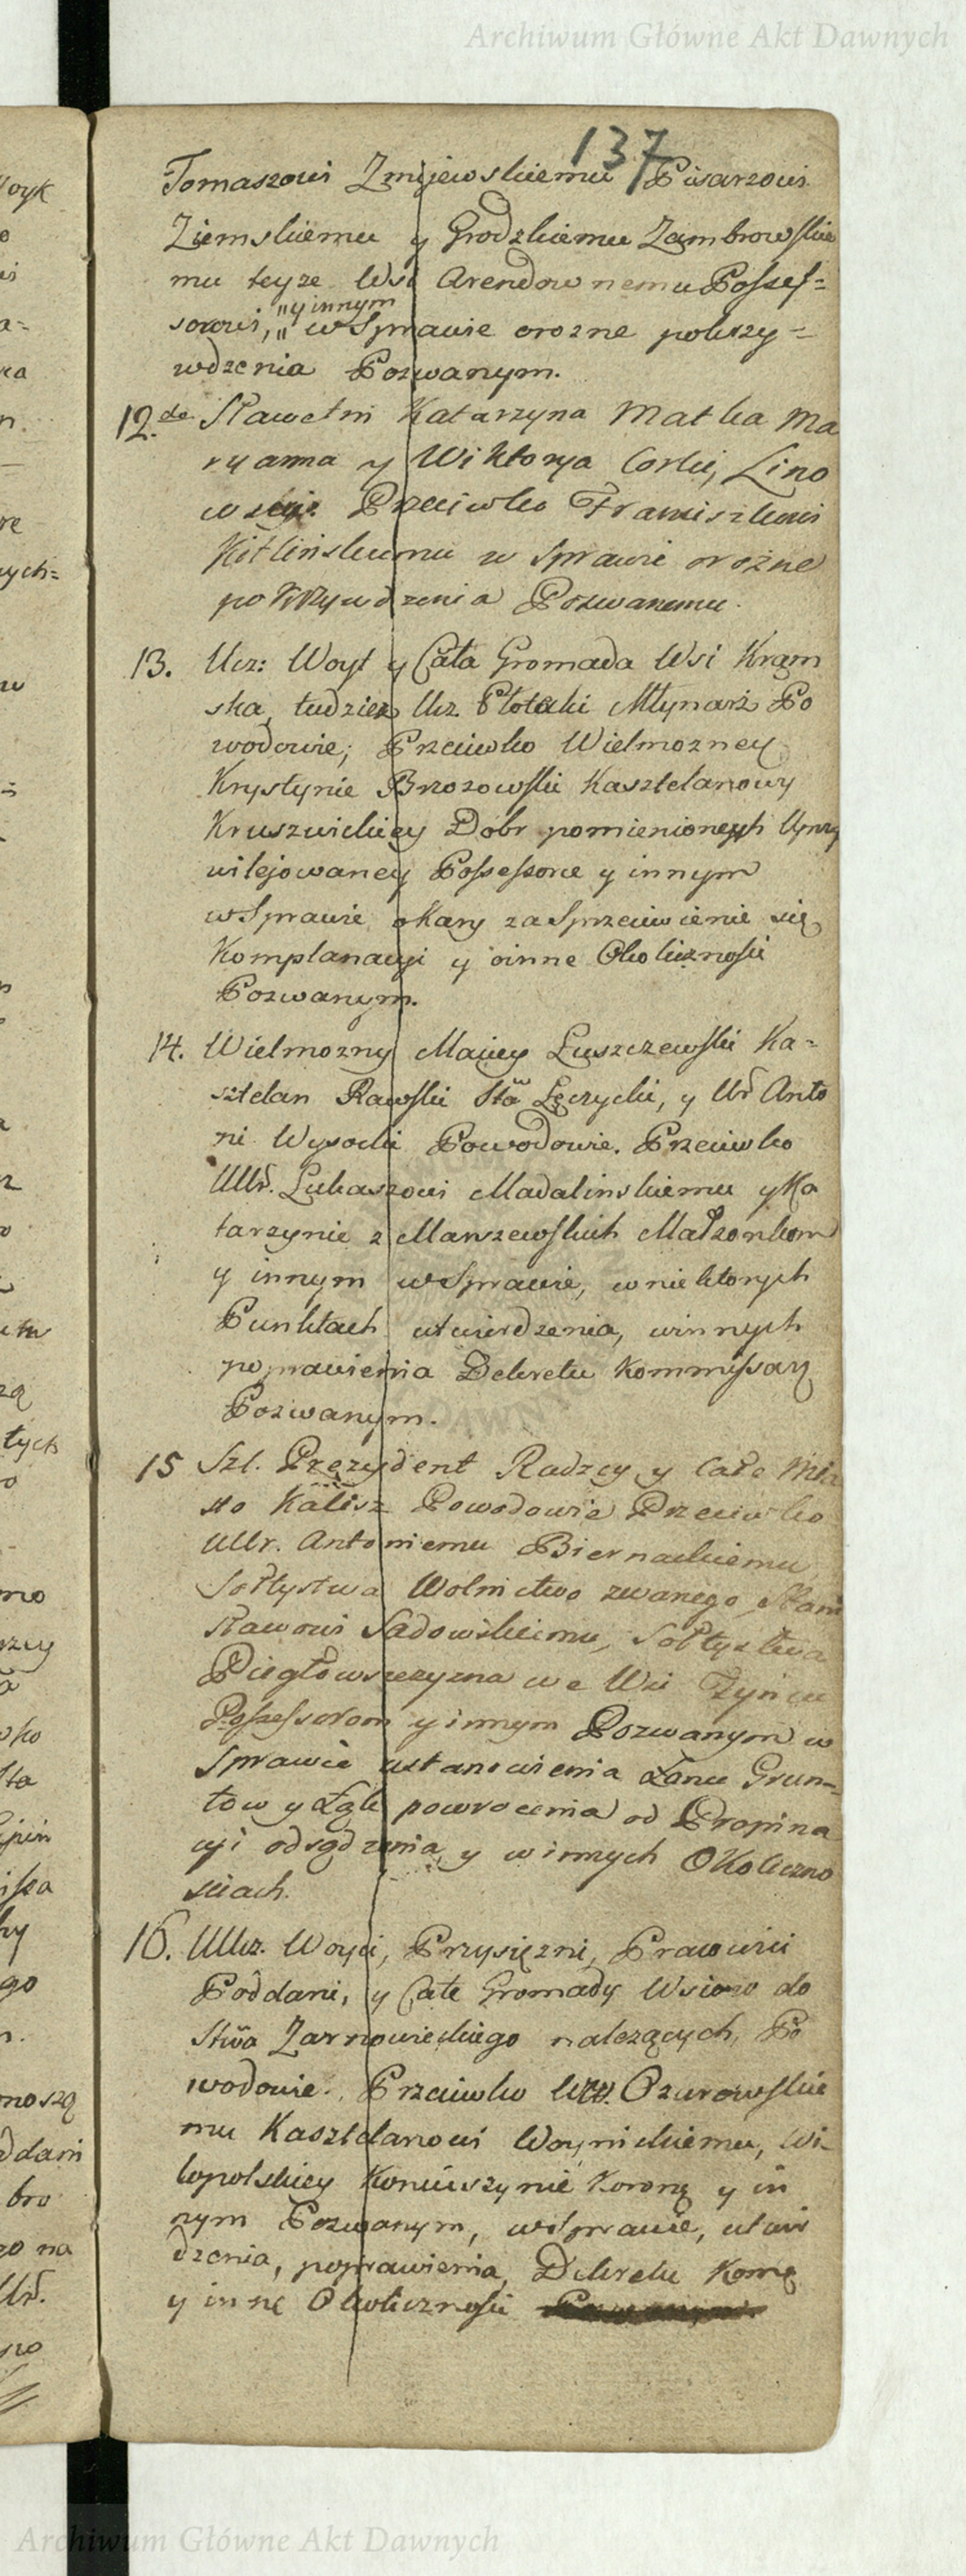 Archiwum Główne Akt Dawnych
137
Tomaszowi Zmijewskiemu Pisarzowi
Ziemskiemu y Grodzkiemu Zambrowskie
mu teyze Wsi Arendownemu Possef=
sorowi, „y innym „ w Sprawie orozne pokrzy=
wdzenia Pozwanym.
12.do Sławetni Katarzyna Matka Ma
ryanna y Wiktorya Corki, Lino
wskie Przeciwko Franciszkowi
Kitlinskiemu w Sprawie orożne
pokrzywdzenia Pozwanemu.
13. Ucz: Woyt y Cała Gromada Wsi Kram
ska, tudziez Ucz. Płotcki Młynarz Po
wodowie; Przeciwko Wielmozney
Krystynie Brzozowski Kasztelanowy
Kruszwickiey Dobr pomienionych Uprzy
wilejowaney Possessorce y innym
w Sprawie o Kary za Sprzeciwienie się
Komplanacyi y oinne Okoliznosci
Pozwanym.
14. Wielmozny Maciey Łuszczewski Ka=
sztelan Rawski Stã Łęczycki, y Ur Anto
ni Wysocki Powodowie. Przeciwko
UUr. Łukaszowi Madalinskiemu y Ka
tarzynie z Marszewskich Małzonkom
y innym w Sprawie, w niektorych
Punktach utwierdzenia, w innych
poprawienia Dekretu Kommissarz
Pozwanym.
15 Szl. Prezydent Radzcy y Całe Mia
sto Kalisz Powodowie Przeciwko
UUr. Antoniemu Biernackiemu
Sołtystwa Wolnictwo zwanego, Stani
sławowi Sadowskiemu, Sołtystwa
Piegłowszczyzna we Wsi Tyńcu
Possessorom y innym Pozwanym w
Sprawie ustanowienia Łanu Grun=
tow y Łąk powrocenia od Propina
cyi odsądzenia y w innych Okoliczno
sciach.
16. UUcz. Woyci, Przysięzni, Pracowici
Poddani, y Całe Gromady Wsiow do
Stwa Zarnowieckiego nalezących, Po
wodowie. Przeciwko WW. Ozurowskie
mu Kasztelanowi Woynickiemu, Wi=
lopolskiey Koniuszynie Koroną y in
nym Pozwanym, w Sprawie, utwir
dzenia, poprawienia, Dekretu Komę
y innę Okolicznosci
Archiwum Główne Akt Dawnych